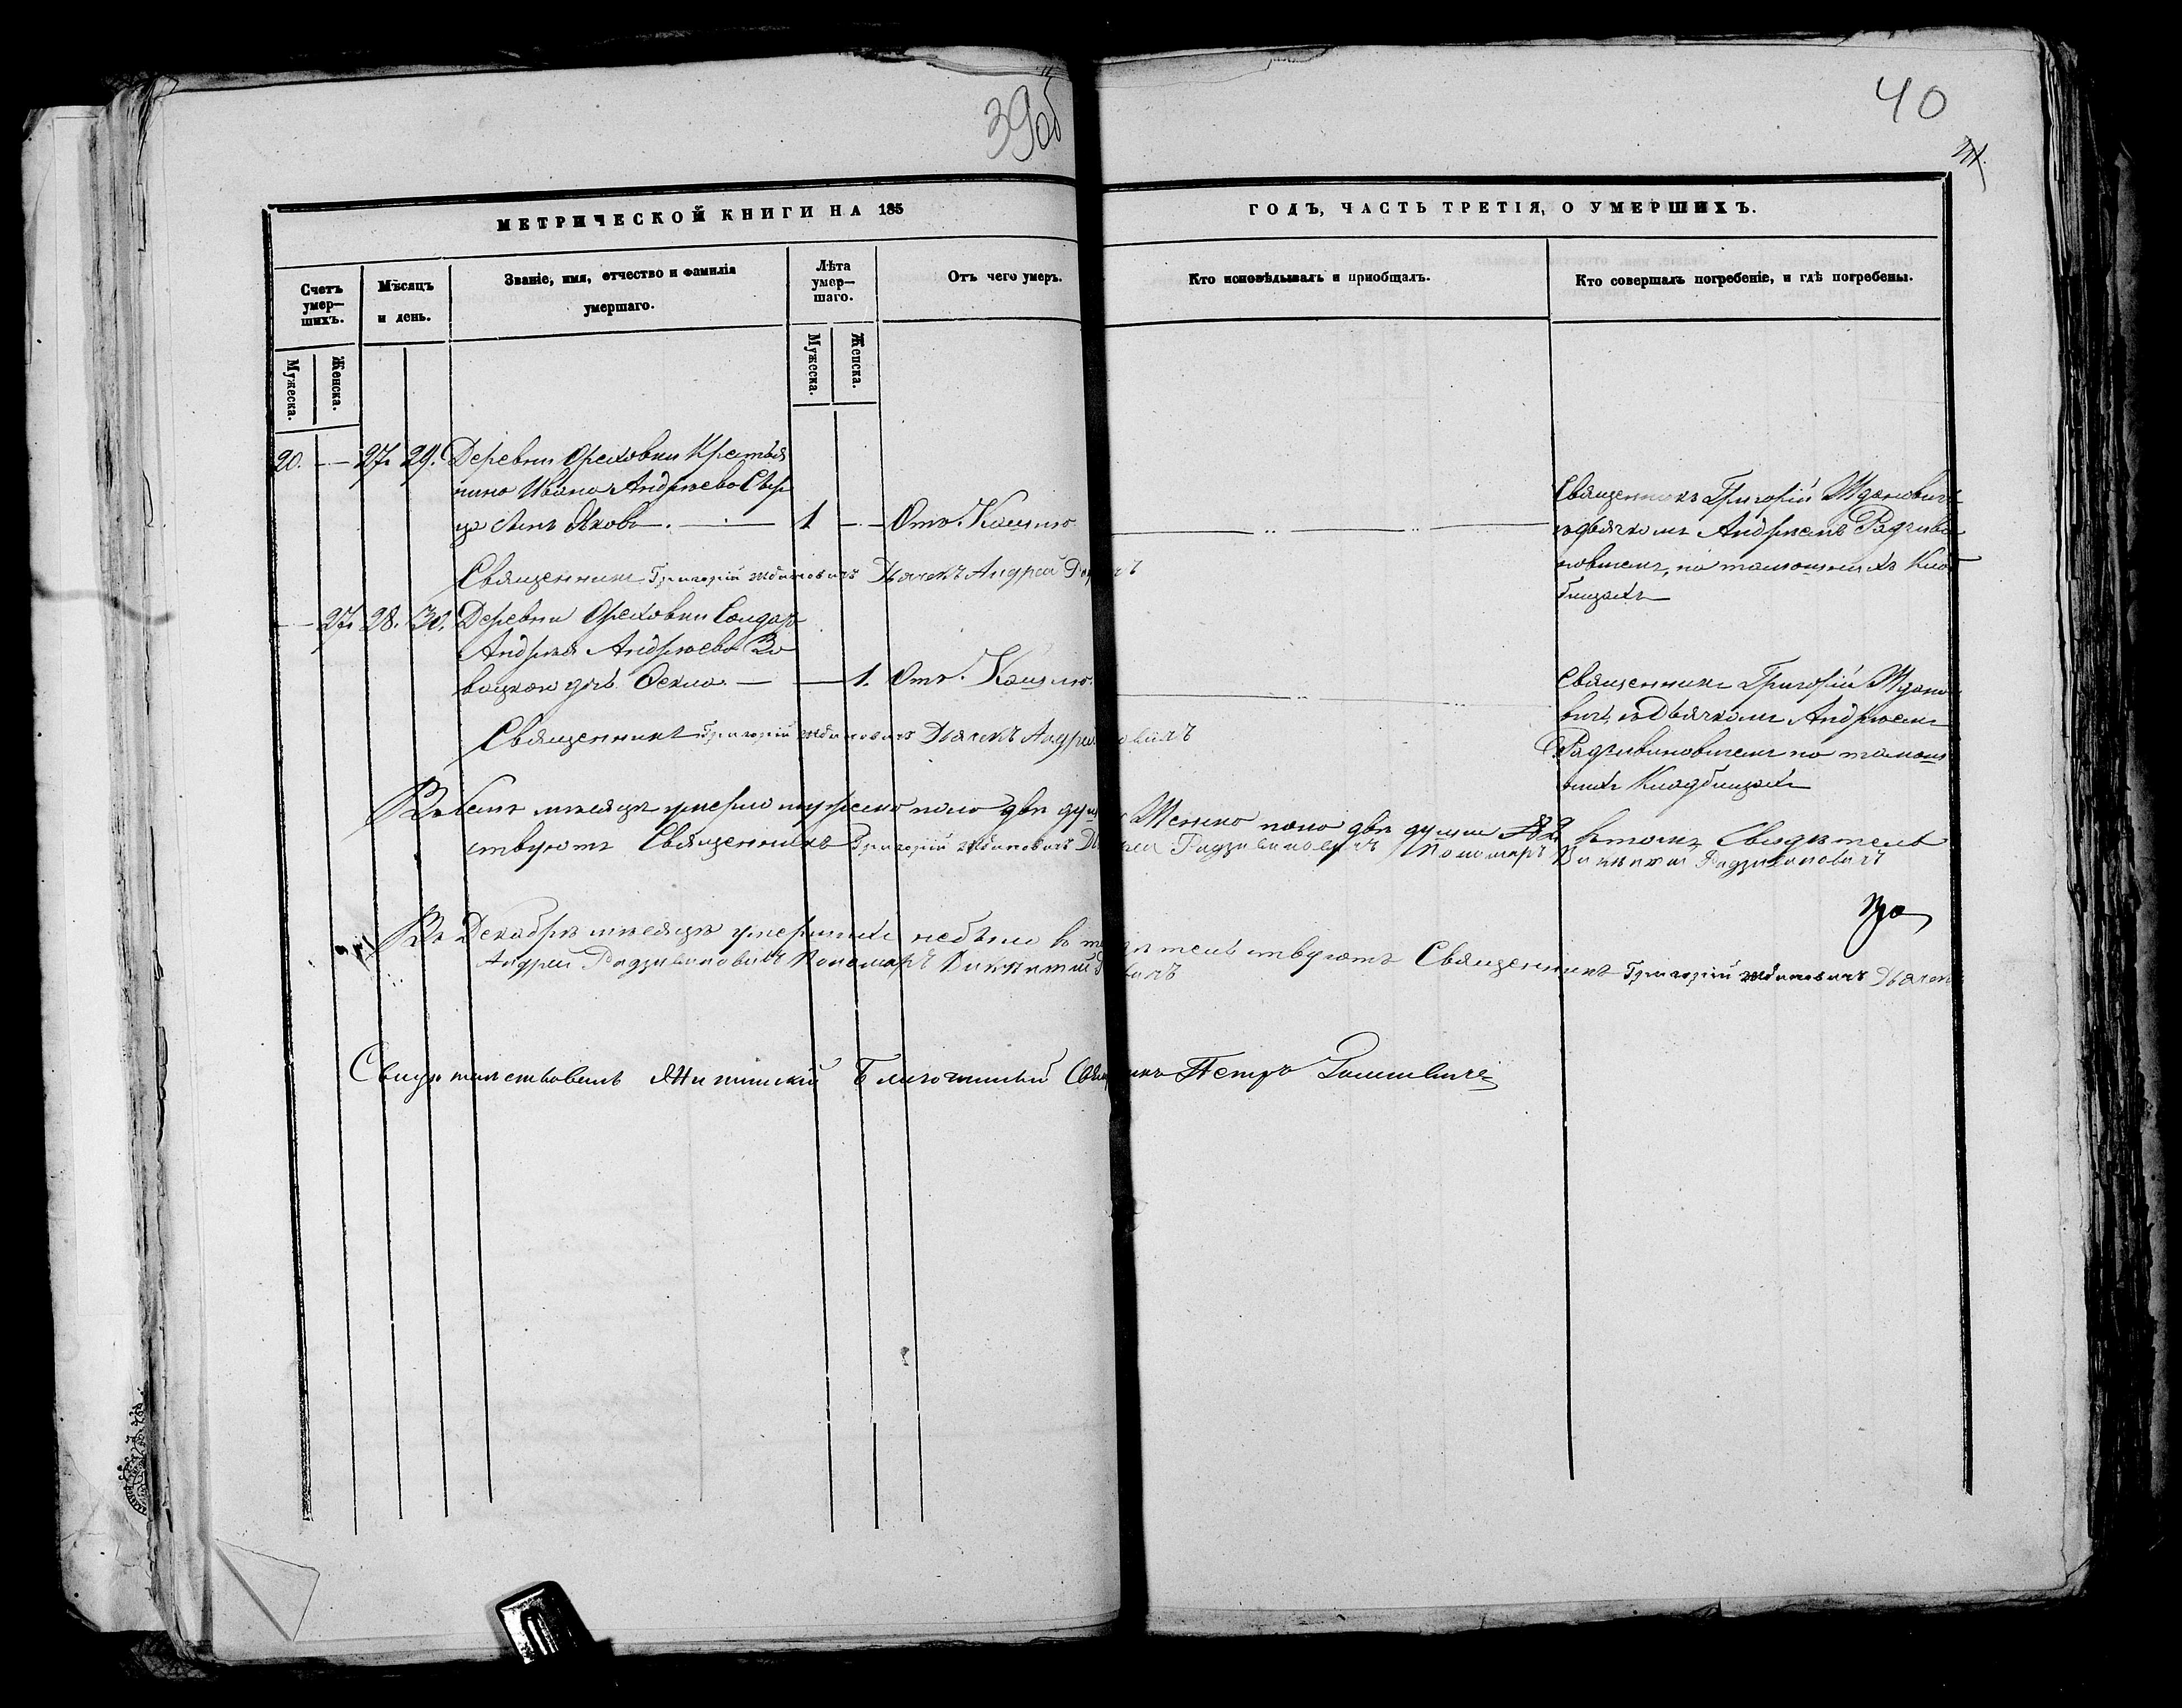 39об
40
МЕТРИЧЕСКОЙ КНИГИ НА 185
ГОДЪ, ЧАСТЬ ТРЕТІЯ, О УМЕРШИХЪ.
Счетъ умер—шихъ.
Мужеска.
Женска.
Мѣсяцъ и день.
Званіе, имя, отчество и фамилія умершаго.
Лѣта умер—шаго.
Мужеска.
Женска.
Отъ чего умеръ.
Кто исповѣдывалъ и пріобщалъ.
Кто совершалъ погребеніе, и гдѣ погребены.
20. — 27. 29. Деревни Ореховки Крестья
нина Ивана Андреева
сынъ Яковъ. — 1 — Отъ Кашлю
Священникъ Григорій Жданович
Андреемъ Радзиви
новичемъ, на тамошнихъ Клад
бищахъ
Священникъ Григорій Ждановичъ Дьячекъ Андрей
— 27. 28. 30. Деревни Ореховки Солдата
Андрея Андреева
дочь Фекла. — 1. Отъ Кашлю.
Священникъ Григорій Ждано
вичъ съ Дьячкомъ Андреемъ
Радзивиновичемъ на тамош
нихъ Кладбищахъ
Священникъ Григорій Ждановичъ Дьячекъ Андрей
семъ мѣсяцѣ умерло мужеска пола двѣ душ Женска пола двѣ души въ томъ Свидѣтель
ствуютъ Священникъ Григорій Ждановичъ Радзивиновичъ Пономаръ Викентій Радзивиновичъ
Въ Декабрѣ мѣсяцѣ умершихъ небыло въ тельствуютъ Священникъ Григорій Ждановичъ Дьячекъ
Андрей Радзивиновичъ Пономаръ Викентій
Свидѣтельствовалъ Благочинный Петръ